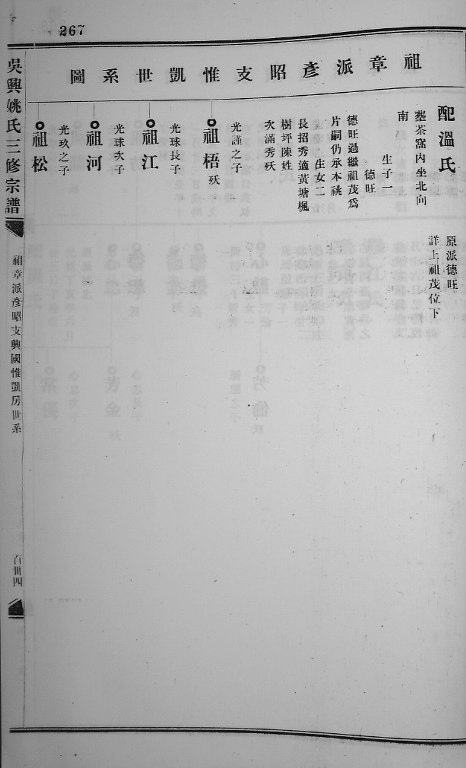 267
祖章派彥昭支惟凱世系圖
配溫氏
原派德旺
詳上祖茂位下
塟茶窩內坐北向
南
生子一
德旺
德旺過繼祖茂爲
片嗣仍承本祧
生女二
長招秀適黃塘楓
樹坪陳姓
次滿秀殀
祖梧 殀
光謹之子
祖江
光球長子
祖河
光球次子
祖松
光玖之子
吳興姚氏三修宗譜
祖章派彥昭支興國惟凱房世系
百世四